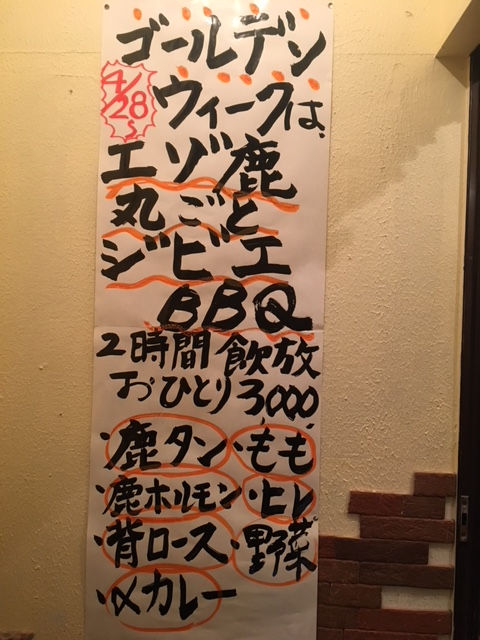 ゴールデン
4/28〜
ウィークは、
エゾ鹿
丸ごと
ジビエ
BBQ
2時間飲放
おひとり3,000、
・鹿タン ・もも
・鹿ホルモン ・ヒレ
・背ロース ・野菜
・〆カレー